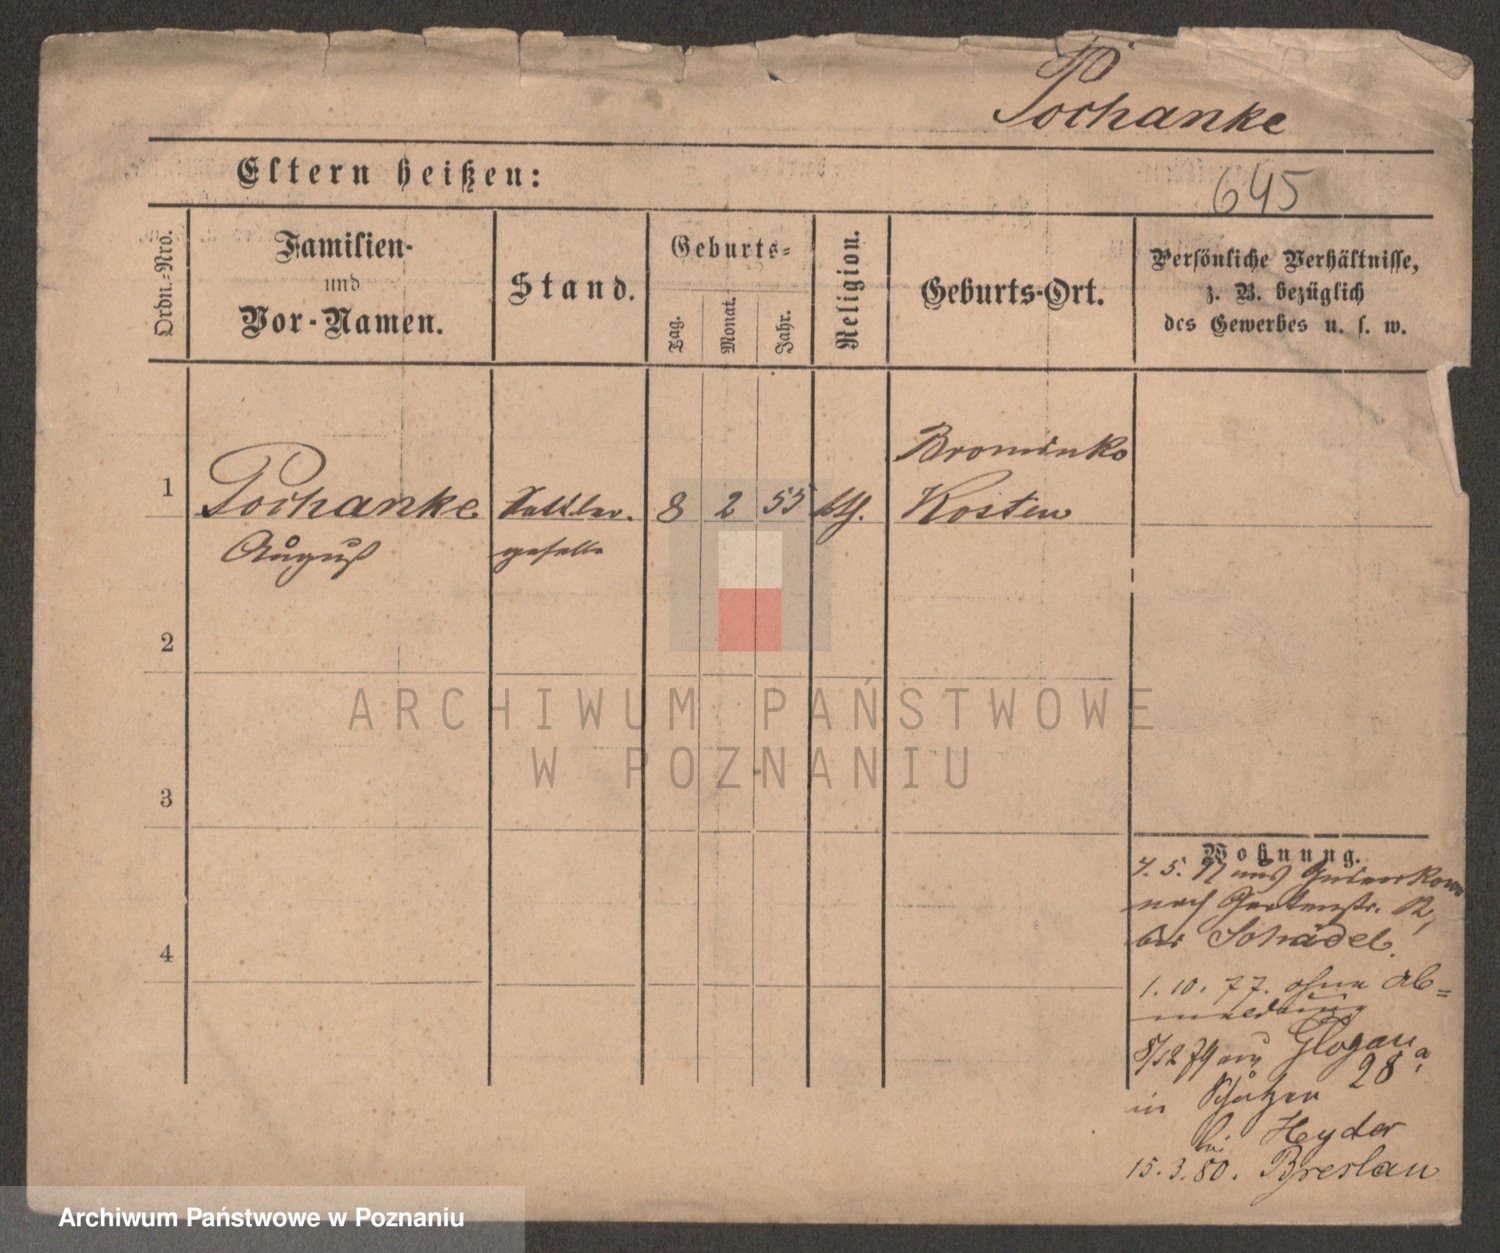 Pochanke
Eltern heißen:
645
Ordn.-Nro.
Familien-
und
Vor-Namen.
Stand.
Geburts-
Tag.
Monat.
Jahr.
Religion.
Geburts-Ort.
Persönliche Verhältnisse,
z. B. bezüglich
des Gewerbes u. s. w.
Brominko
1
Pochanke
Sattler-
8
2
55
Kosten
August
geselle
2
3
4
Wohnung.
7. 5. 77 aus
nach Gartenstr. 12,
bei Schädel.
1. 10. 77. ohne Ab=
meldung
8/12 79 aus Glogau
in Schützen 28a
bei Heyder
15. 3. 80. Breslau
ARCHIWUM PAŃSTWOWE
W POZNANIU
Archiwum Państwowe w Poznaniu